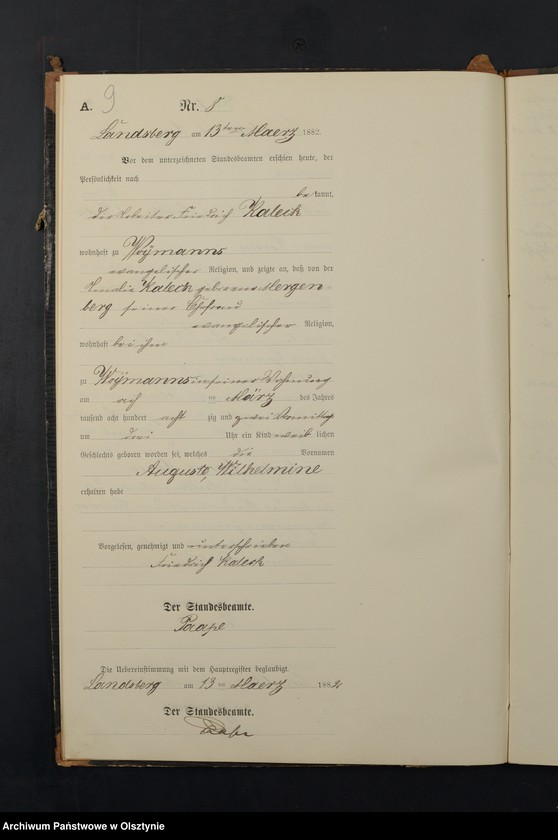 A. 9 Nr. 8
Landsberg am 13ten Maerz 1882.
Vor dem unterzeichneten Standesbeamten erschien heute, der
Persönlichkeit nach
bekannt,
der Arbeiter Friedrich Kalech
wohnhaft zu Woÿmanns
evangelischer Religion, und zeigte an, daß von der
Amalie Kalech geborene Mergen-
berg seiner Ehefrau
evangelischer Religion,
wohnhaft bei ihm
zu Woÿmanns in seiner Wohnung
am acht ten März des Jahres
tausend acht hundert acht zig und zwei Vormittags
um drei Uhr ein Kind weib lichen
Geschlechts geboren worden sei, welches die Vornamen
Auguste, Wilhelmine
erhalten habe
Vorgelesen, genehmigt und unterschrieben
Friedrich Kalech
Der Standesbeamte.
Die Uebereinstimmung mit dem Hauptregister beglaubigt.
Landsberg am 13 ten Maerz 1882
Der Standesbeamte.
Archiwum Państwowe w Olsztynie